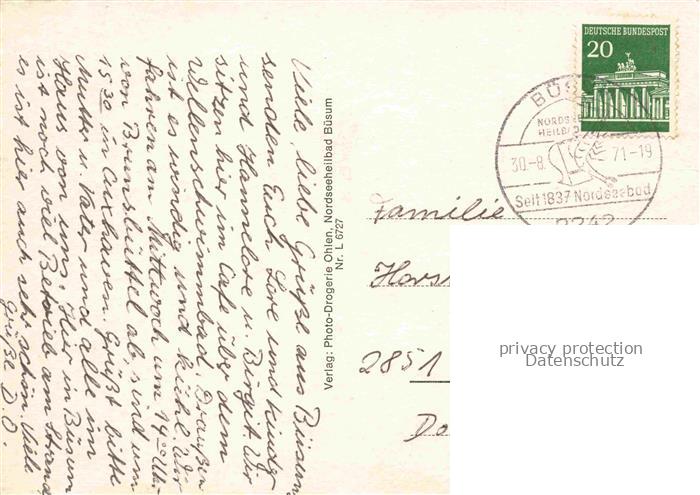 Viele, liebe Grüße aus Büsum
senden Euch Lore und Kinder
und Hannelore u. Birgit. Wir
sitzen hier im Cafe über dem
Wellenschwimmbad. Draußen
ist es windig und kühl. Wir
fahren am Mittwoch um 14°° Uhr
von Brunsbüttel ab, sind um
15³⁰ in Cuxhaven. Grüßt bitte
Mutti u. Vater und alle im
Haus von uns. Hier in Büsum
ist noch viel Betrieb am Strand
es ist hier auch sehr schön. Viele
Grüße D. O.
Verlag: Photo-Drogerie Ohlen, Nordseeheilbad Büsum
Nr. L 6727
DEUTSCHE BUNDESPOST
20
BÜS
NORDSEE
HEILBAD
30.-8. 71-19
Seit 1837 Nordseebad
2242
Familie
Hors
2851
Do
privacy protection
Datenschutz